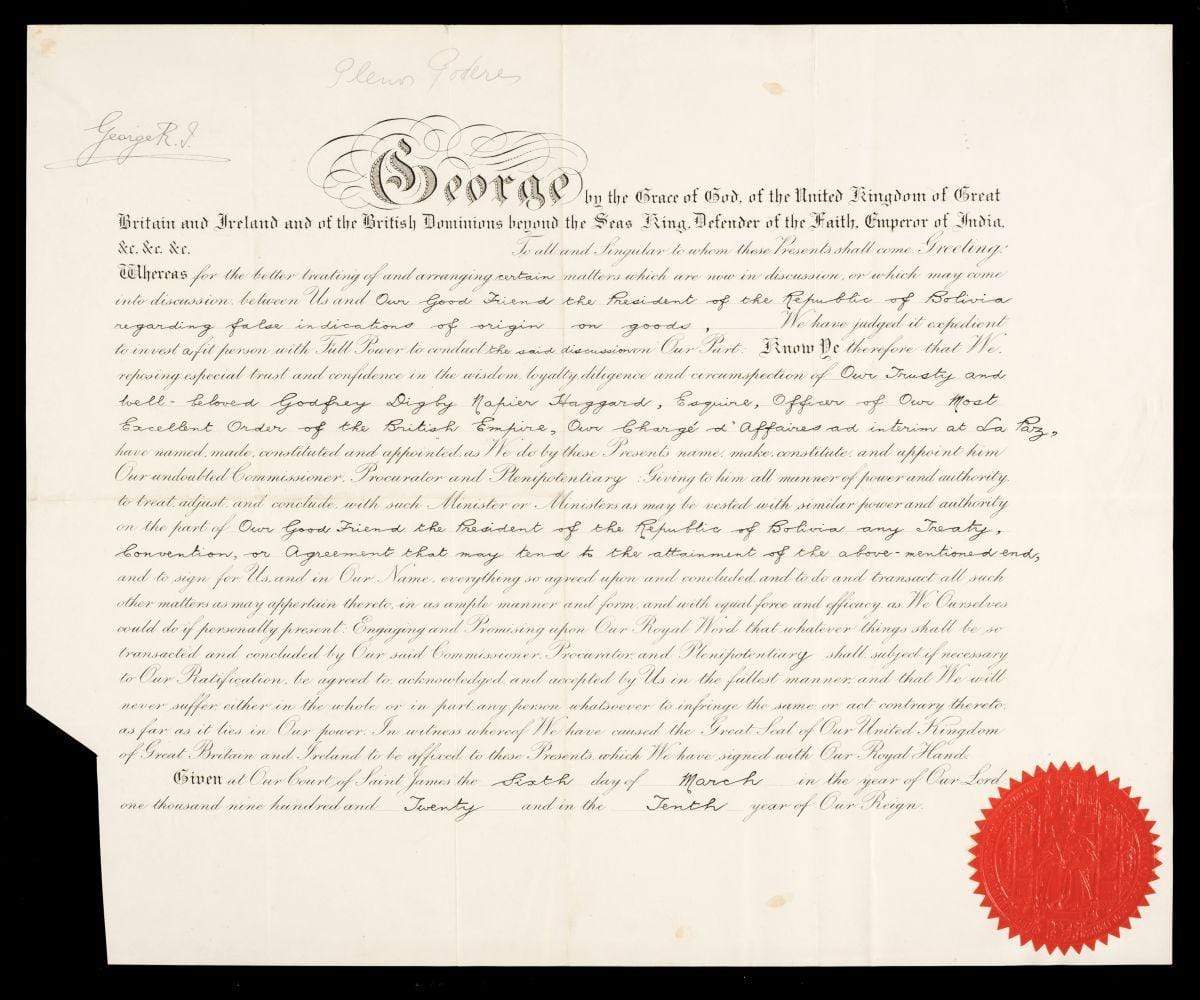 Plenos Poderes
George R.I.
George by the Grace of God, of the United Kingdom of Great
Britain and Ireland and of the British Dominions beyond the Seas King, Defender of the Faith, Emperor of India,
&c. &c. &c. To all and Singular to whom these Presents shall come, Greeting:
Whereas for the better treating of and arranging certain matters which are now in discussion, or which may come
into discussion, between Us and Our Good Friend the President of the Republic of Bolivia
regarding false indications of origin on goods, We have judged it expedient
to invest a fit person with Full Power to conduct the said discussion on Our Part: Know Ye therefore that We,
reposing especial trust and confidence in the wisdom, loyalty, diligence and circumspection of Our Trusty and
well-beloved Godfrey Digby Napier Haggard, Esquire, Officer of Our Most
Excellent Order of the British Empire, Our Chargé d'Affaires ad interim at La Paz,
have named, made, constituted and appointed, as We do by these Presents name, make, constitute, and appoint him
Our undoubted Commissioner, Procurator and Plenipotentiary: Giving to him all manner of power and authority,
to treat, adjust, and conclude, with such Minister or Ministers as may be vested with similar power and authority
on the part of Our Good Friend the President of the Republic of Bolivia any Treaty,
Convention, or Agreement that may tend to the attainment of the above-mentioned end,
and to sign for Us, and in Our Name, everything so agreed upon and concluded, and to do and transact all such
other matters as may appertain thereto, in as ample manner and form, and with equal force and efficacy, as We Ourselves
could do if personally present: Engaging and Promising upon Our Royal Word that whatever things shall be so
transacted and concluded by Our said Commissioner, Procurator, and Plenipotentiary shall, subject if necessary
to Our Ratification, be agreed to, acknowledged, and accepted by Us in the fullest manner, and that We will
never suffer, either in the whole or in part, any person whatsoever to infringe the same or act contrary thereto,
as far as it lies in Our power. In witness whereof We have caused the Great Seal of Our United Kingdom
of Great Britain and Ireland to be affixed to these Presents, which We have signed with Our Royal Hand.
Given at Our Court of Saint James the Sixth day of March in the year of Our Lord
one thousand nine hundred and Twenty and in the Tenth year of Our Reign.